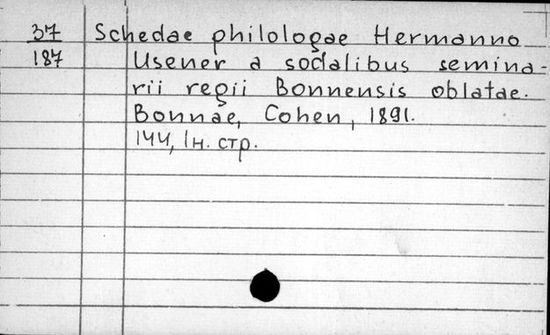 37 Schedae philologae Hermanno
187 Usener a sodalibus semina-
rii regii Bonnensis oblatae.
Bonnae, Cohen, 1891.
144, 1н. стр.